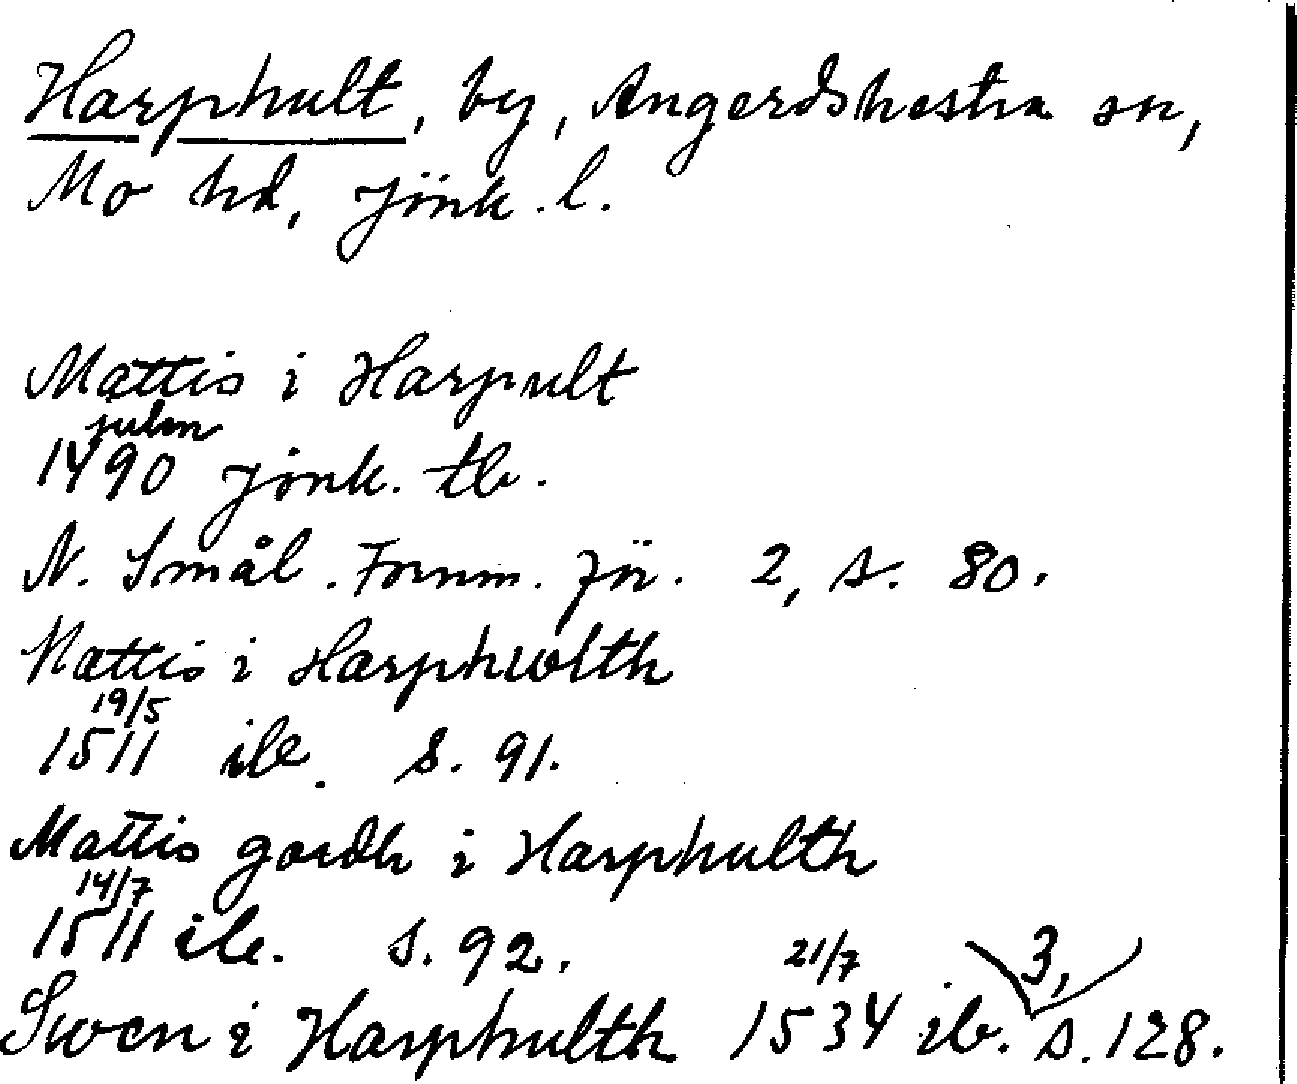 Harphult, by, Angerdshestra sn,
Mo hd, Jönk. l.
Mattis i Harpult
julen
1490 Jönk. tb.
N. Smål. Fornm. för. 2, s. 80.
Mattis i Harphwlth
19/5
1511 ib. s. 91.
Mattis gordh i Harphulth
14/7
1511 ib. s. 92.
21/7 3,
Swen i Harphulth 1534 ib. s. 128.